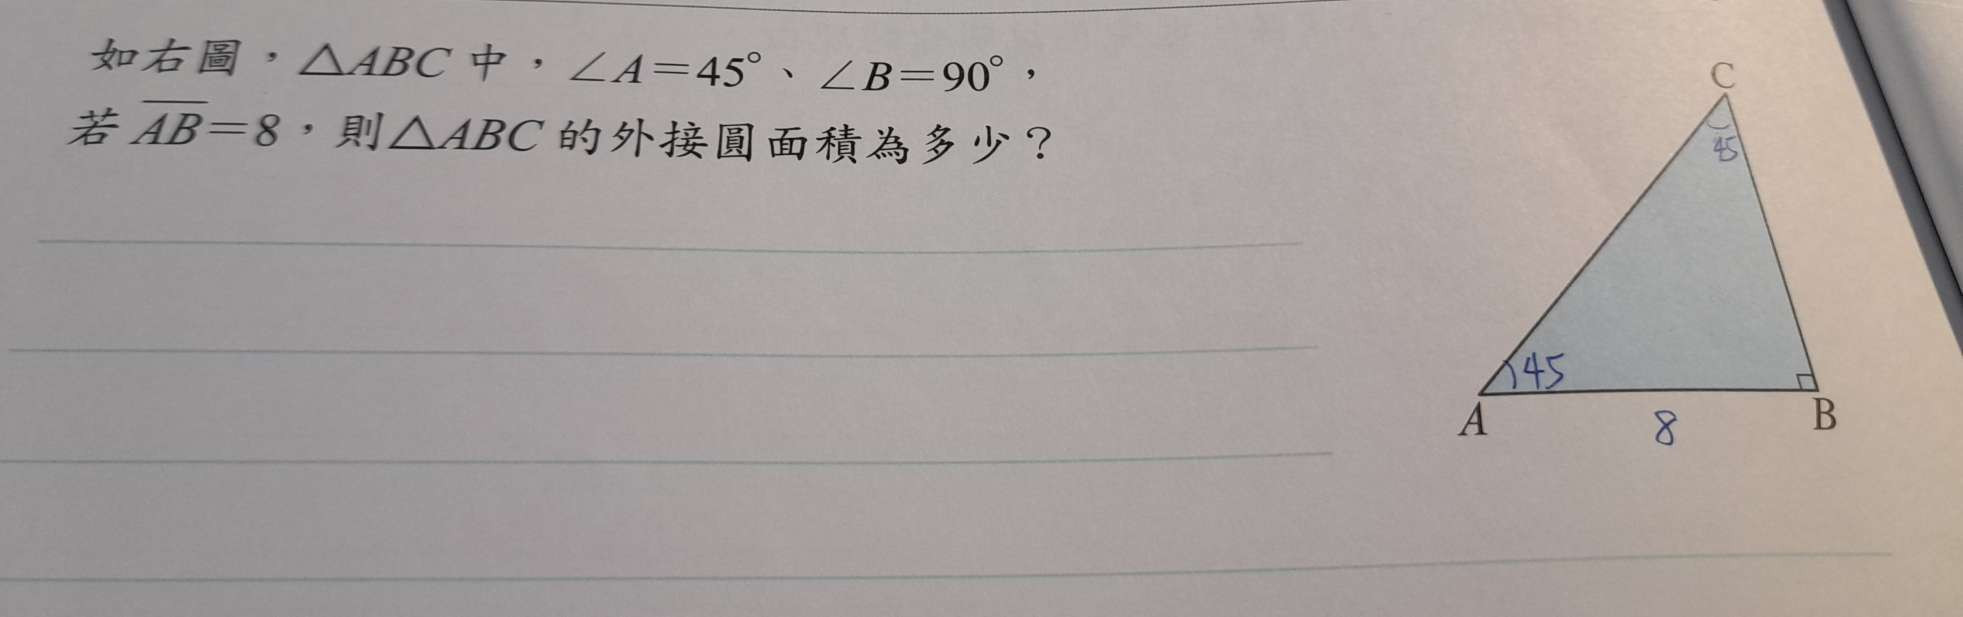 如右圖，△ABC 中，∠A＝45°、∠B＝90°，
若 A̅B̅＝8，則△ABC 的外接圓面積為多少？
C
45
45
A
8
B